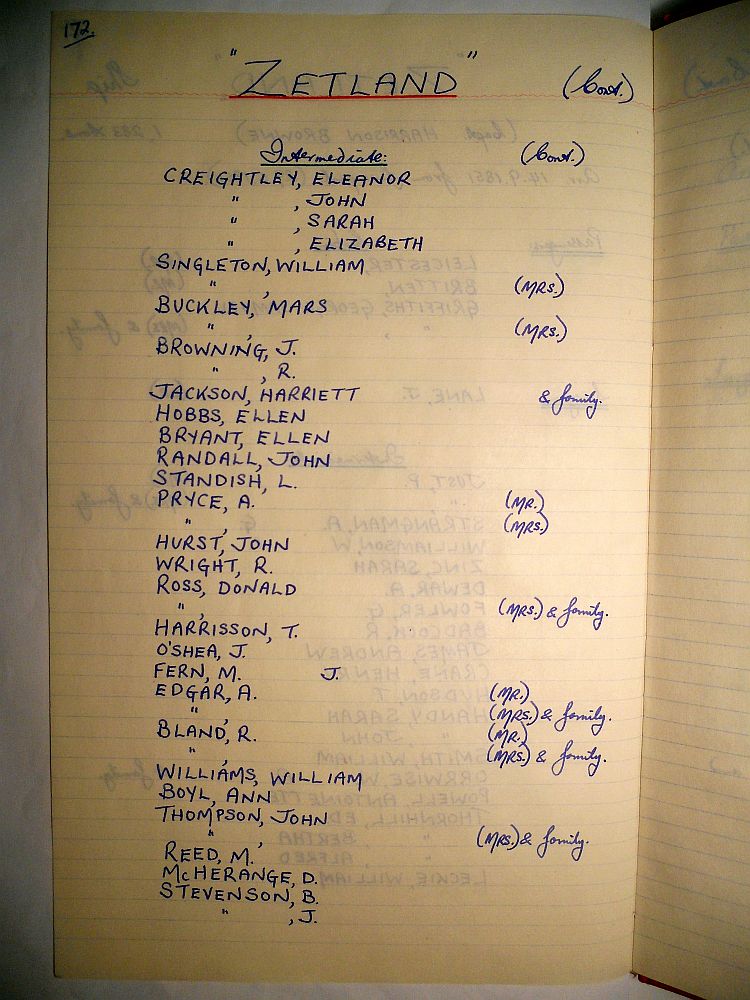 172.
"ZETLAND" (Cont.)
Intermediate: (Cont.)
CREIGHTLEY, ELEANOR
" , JOHN
" , SARAH
" , ELIZABETH
SINGLETON, WILLIAM
" , (MRS.)
BUCKLEY, MARS
" , (MRS.)
BROWNING, J.
" , R.
JACKSON, HARRIETT & family.
HOBBS, ELLEN
BRYANT, ELLEN
RANDALL, JOHN
STANDISH, L.
PRYCE, A. (MR.)
" , (MRS)
HURST, JOHN
WRIGHT, R.
ROSS, DONALD
" , (MRS.) & family.
HARRISSON, T.
O'SHEA, J.
FERN, M. J.
EDGAR, A. (MR.)
" , (MRS.) & family.
BLAND, R. (MR.)
" , (MRS.) & family.
WILLIAMS, WILLIAM
BOYL, ANN
THOMPSON, JOHN
" , (MRS.) & family.
REED, M.
McHERANGE, D.
STEVENSON, B.
" , J.